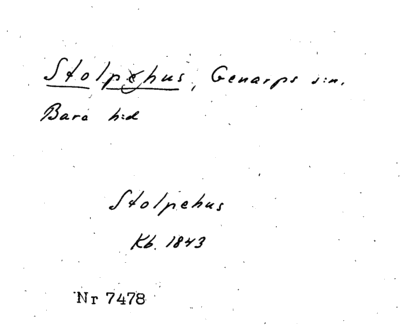 Stolpehus, Genarps s:n.
Bara h:d
Stolpehus
Kb. 1843
Nr 7478